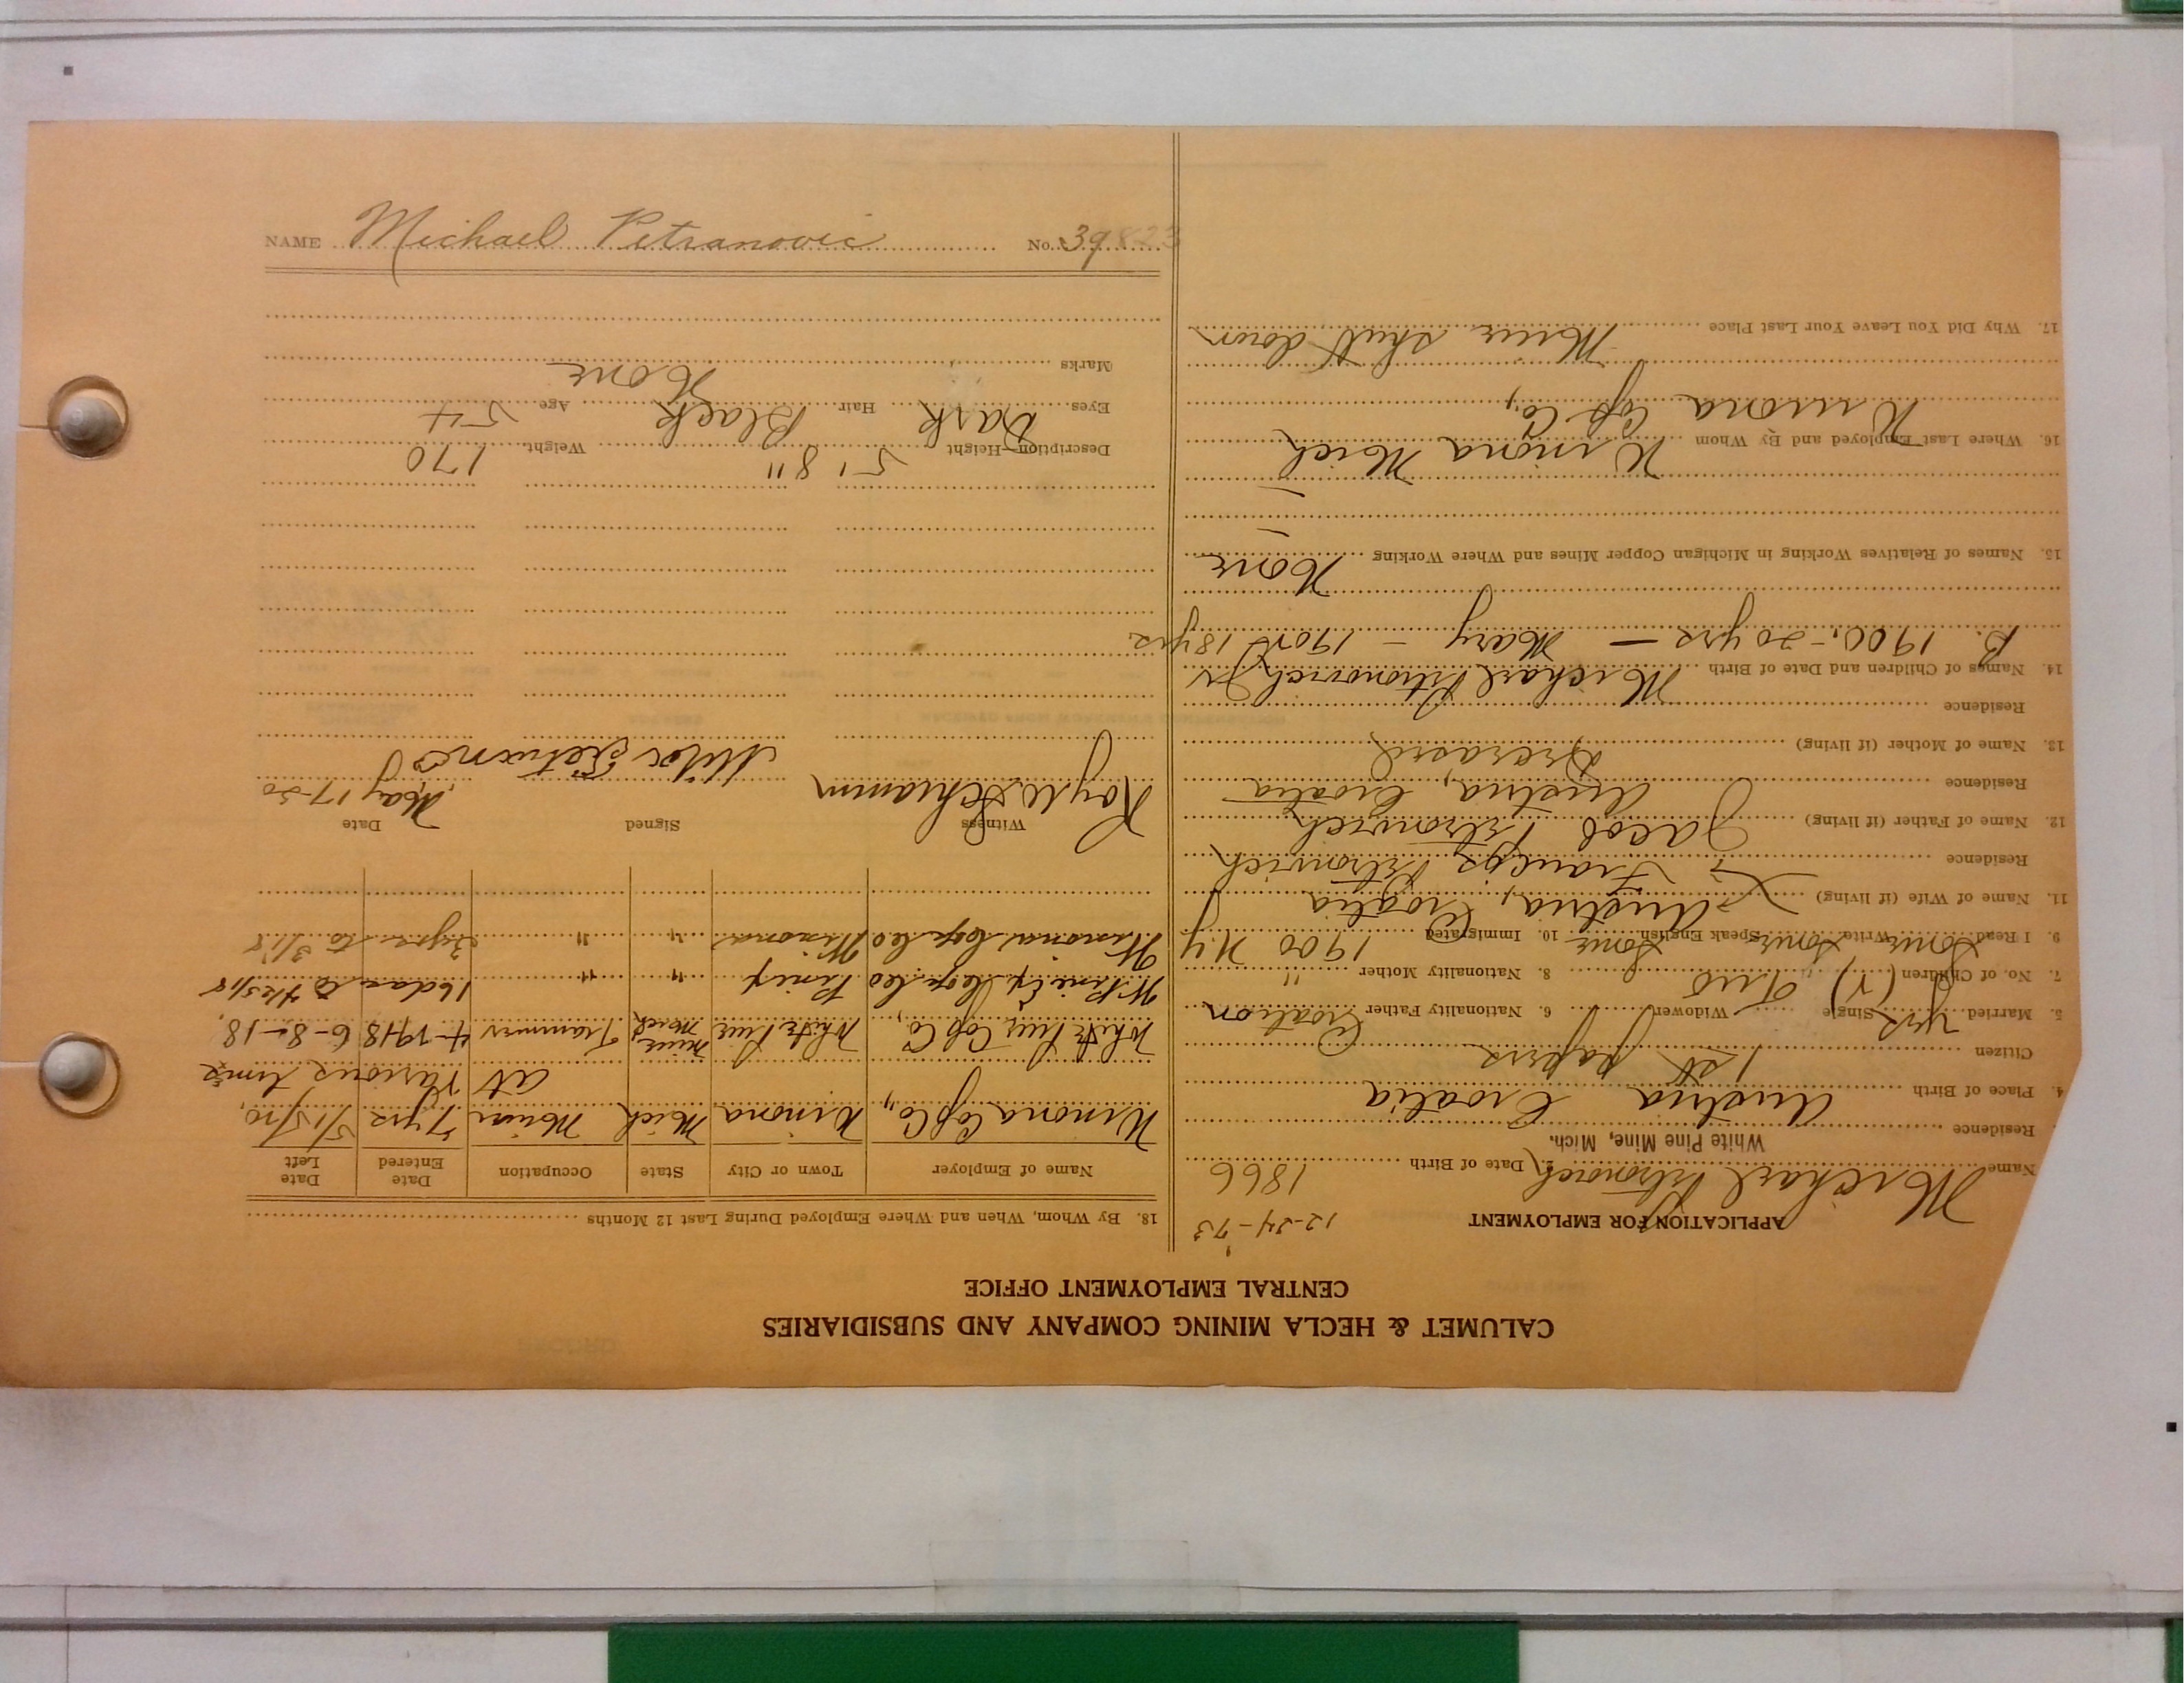 CALUMET & HECLA MINING COMPANY AND SUBSIDIARIES
CENTRAL EMPLOYMENT OFFICE
APPLICATION FOR EMPLOYMENT 12-24-73
Name Michael Petronovich Date of Birth 1866
White Pine Mine, Mich.
Residence
4. Place of Birth Austria Croatia
Citizen 1st papers
5. Married yes Single Widower 6. Nationality Father Croation
7. No. of Children (2) Two 8. Nationality Mother "
9. I Read Some Write Some Speak English Some 10. Immigrated 1900 N.Y
11. Name of Wife (if living) Austria, Croatia
Residence Petronvich
12. Name of Father (if living) Jacob Petronvich
Residence Austria, Croatia
13. Name of Mother (if living) Deceased
Residence
14. Names of Children and Date of Birth Michael Petronovich Jr
B. 1900.-20 yrs - Mary - 1902 18 yrs.
15. Names of Relatives Working in Michigan Copper Mines and Where Working None
16. Where Last Employed and By Whom Winona Mich
Winona Cop Co.,
17. Why Did You Leave Your Last Place Mine shut down
18. By Whom, When and Where Employed During Last 12 Months
Name of Employer Town or City State Occupation Date Entered Date Left
Winona Cop Co., Winona Mich Miner 7 yrs 5/15/20.
at various times
White Pine Cop Co, White Pine Mine Mich Trammer 4-1918 6-8-18.
W. Pine Ex Cop Co " " 16 days to 4/25/18
Winona Cop Co Winona " " 2 yrs to 3/1/18
Witness Signed Date
Roy W. Schramm May 17-20
Description—Height 5' 8" Weight 170
Eyes Dark Hair Black Age 54
Marks None
NAME Michael Petranovic No. 39823